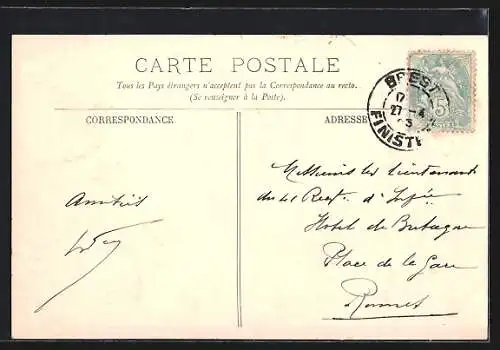 CARTE POSTALE
Tous les Pays étrangers n'acceptent pas la Correspondance au recto.
(Se renseigner à la Poste).
BREST
27 - 4
FINIST
5
CORRESPONDANCE
ADRESSE
Amitiés
Messieurs les Lieutenants
du 41 Regt. d'Inf
Hotel de Bretagne
Place de la Gare
Rennes